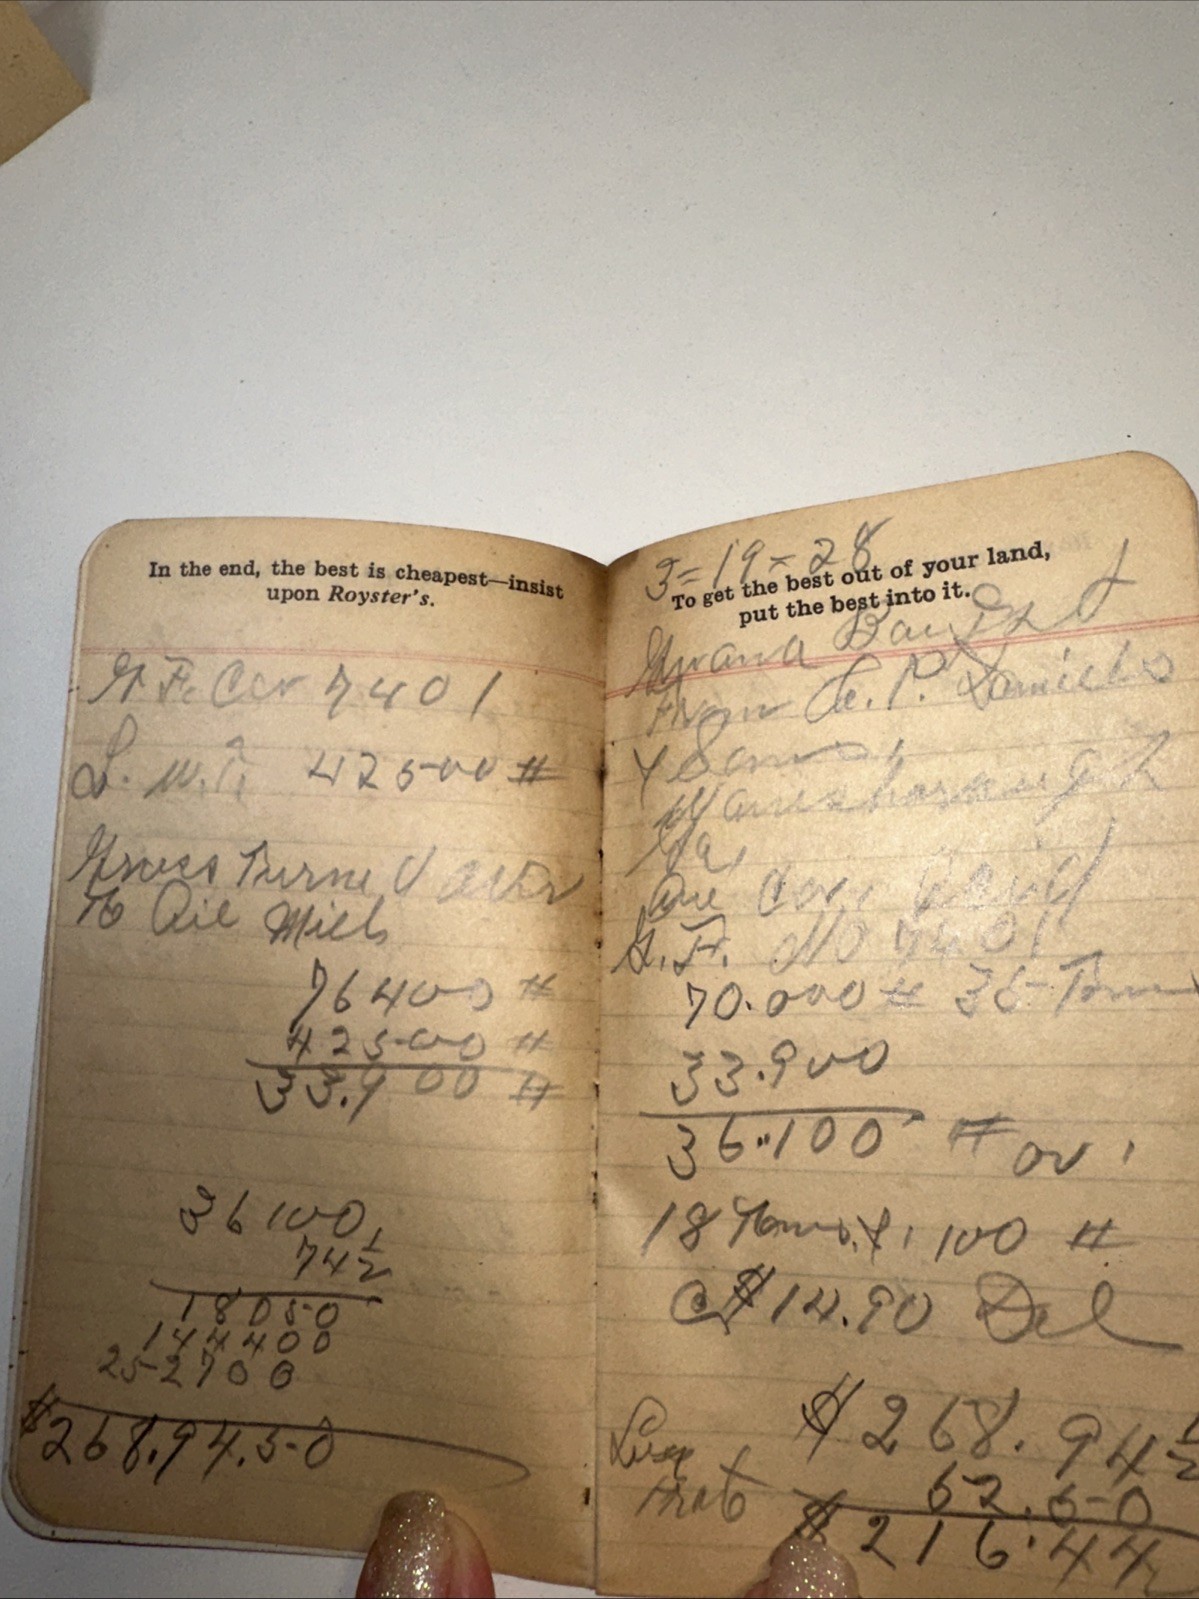 In the end, the best is cheapest—insist
upon Royster's.
Car 7401
L. W. 42500 #
Gross Turned over
To Oil Mill
76400 #
42500 #
33.900 #
36100
74 1/2
18050
144400
252700
$268.94.50
3=19=28
To get the best out of your land,
put the best into it.
Bought
From C. P. Daniels
& Sons,
Waynesboro
Ga,
One Car
No 7401
70.000 # 35 Tons
33.900
36.100 # or
18 Tons & 100 #
@ $14.90 Del
$268.94 1/2
Less 52.50
$216.44 1/2